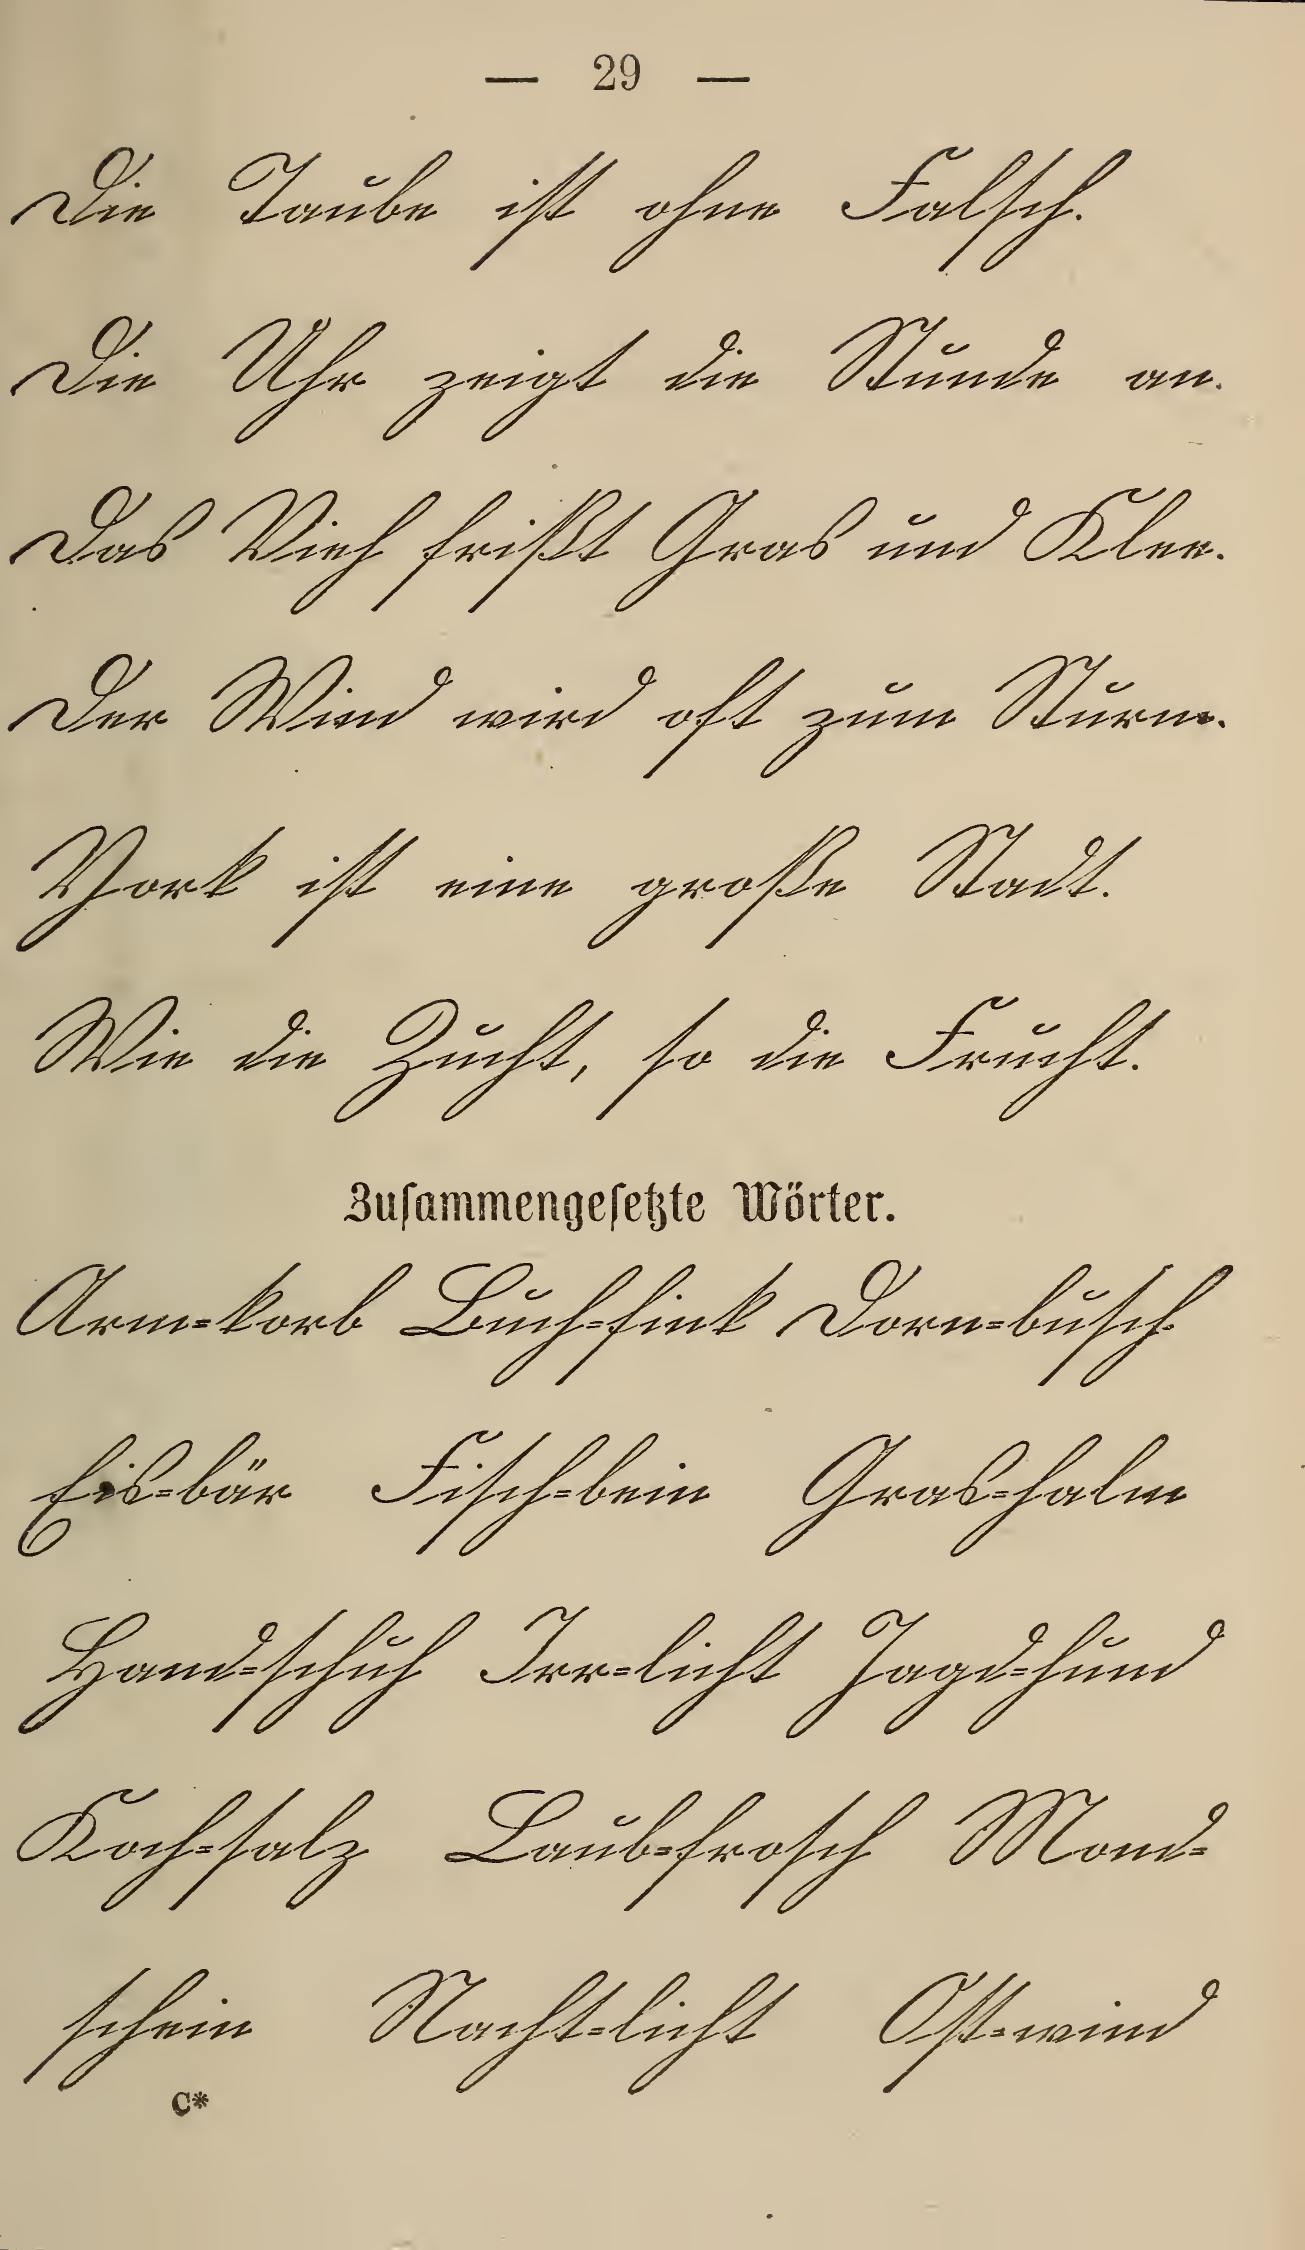 — 29 —
Die Taube ist ohne Falsch.
Die Uhr zeigt die Stunde an.
Das Vieh frißt Gras und Klee.
Der Wind wird oft zum Sturm.
York ist eine große Stadt.
Wie die Zucht, so die Frucht.
Zuſammengeſetzte Wörter.
Arm=korb Buch=fink Dorn=busch
Eis=bär Fisch=bein Gras=halm
Hand=schuh Irr=licht Jagd=hund
Koch=salz Laub=frosch Mond=
schein Nacht=licht Ost=wind
C*